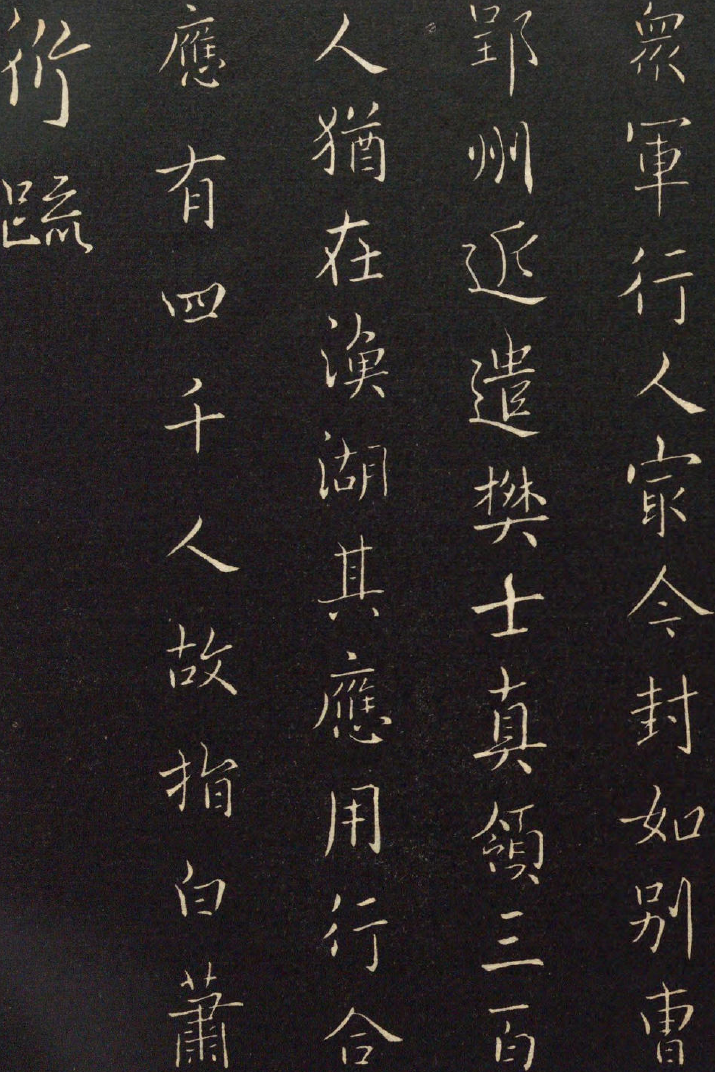 眾軍行人㝡今封如别曺
郢州近遣樊士真領三百
人猶在漁湖其應用行合
應有四千人故指白蕭
衍疏